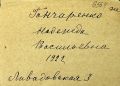 Гончаренко
Надежда
Васильевна
1922
Ливадовская 3